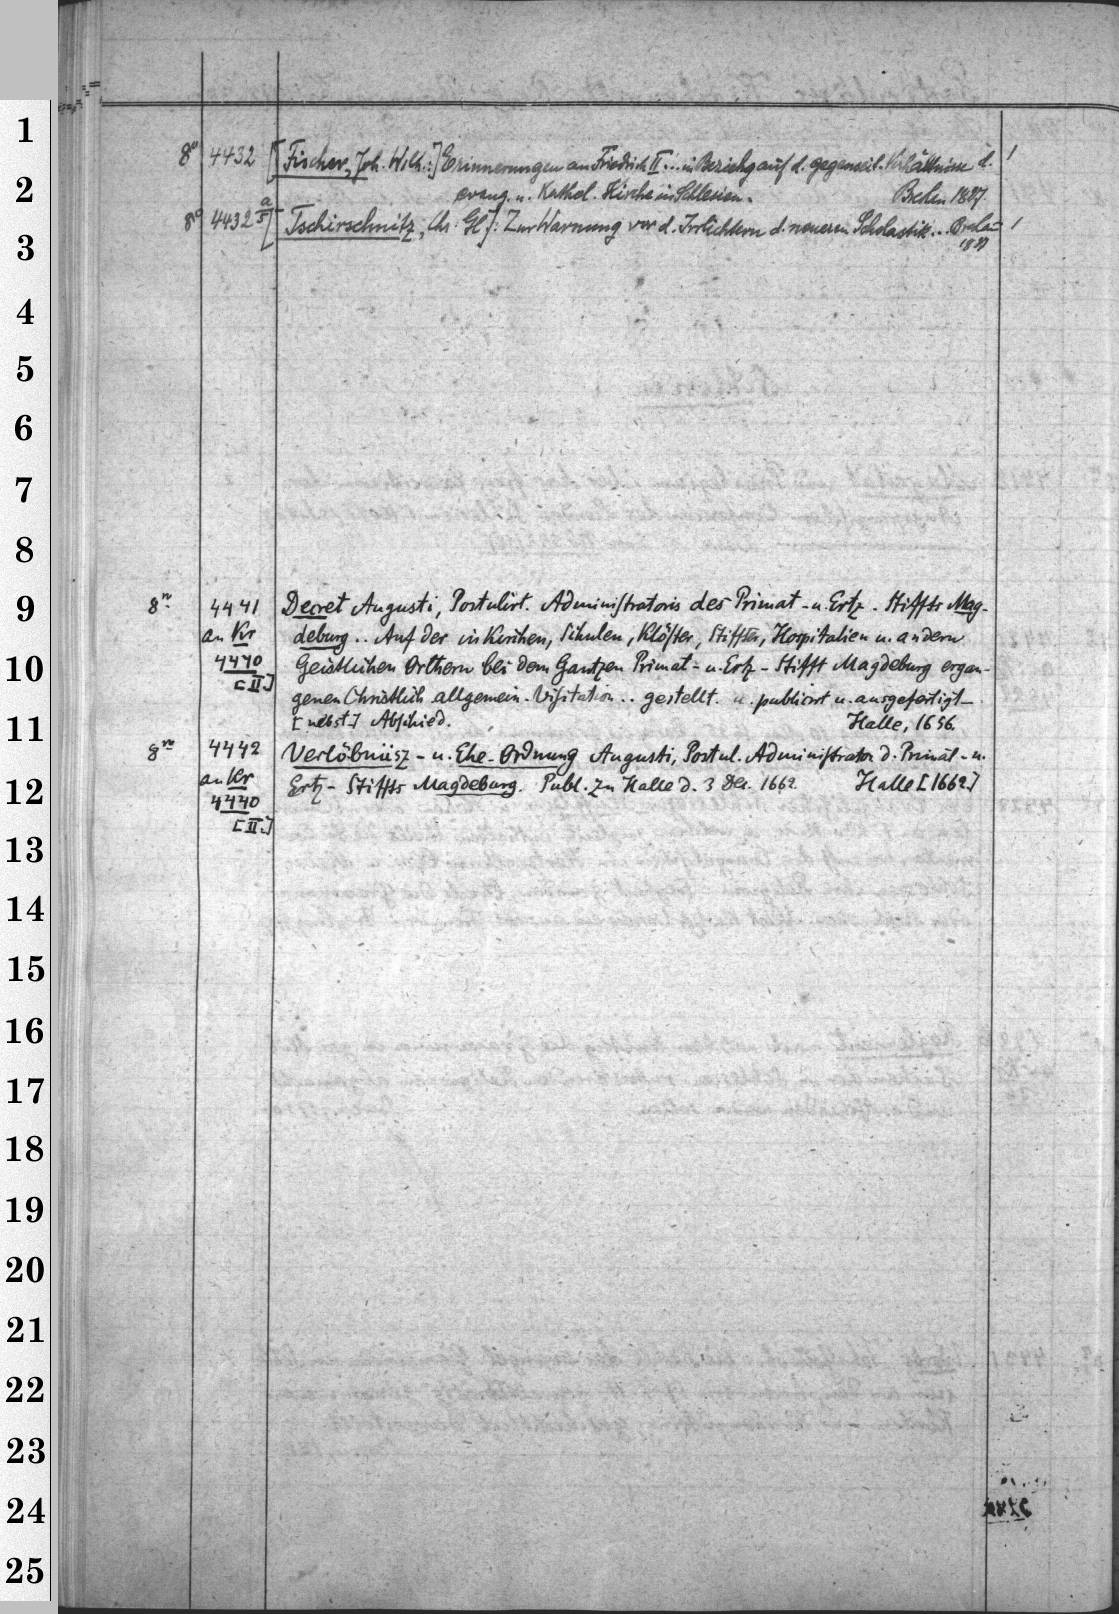 1
8° 4432 [Fischer, Joh. Wilh.:] Erinnerungen an Friedrich II... in Beziehg auf d. gegenseit. Verhältnisse d. 1
2
evang. u. Kathol. Kirche in Schlesien. Breslau 1837.
8° 4432 a/5 [Tschirschnitz, Chr. Gl.]: Zur Warnung vor d. Irrlichtern d. neueren Scholastik... Breslau 1
3
4
5
6
7
8
9
8° 4441 Decret Augusti, Postulirt. Administratoris des Primat- u. Ertz-Stiffts Mag-
an Kr deburg.. Auf der in Kirchen, Schulen, Klöster, Stiffter, Hospitalien u. andern
10
4440 Geistlichen Orthern bei dem Gantzen Primat- u. Ertz-Stifft Magdeburg ergan-
[II.] genen Christlich allgemein. Visitation.. gestellt. u. publicirt u. ausgefertigt
11
[nebst] Abschied. Halle, 1656.
8° 4442 Verlöbnüsz- u. Ehe-Ordnung Augusti, Postul. Administrator d. Primat- u.
an Kr Ertz-Stiffts Magdeburg. Publ. zu Halle d. 3 Dec. 1662. Halle [1662.]
12
4440
[II.]
13
14
15
16
17
18
19
20
21
22
23
24
25